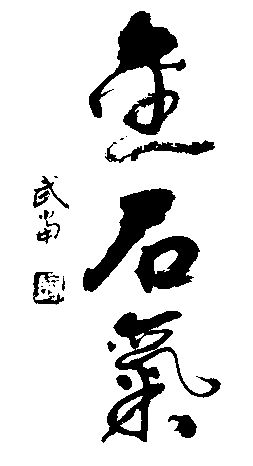 金石氣
武當